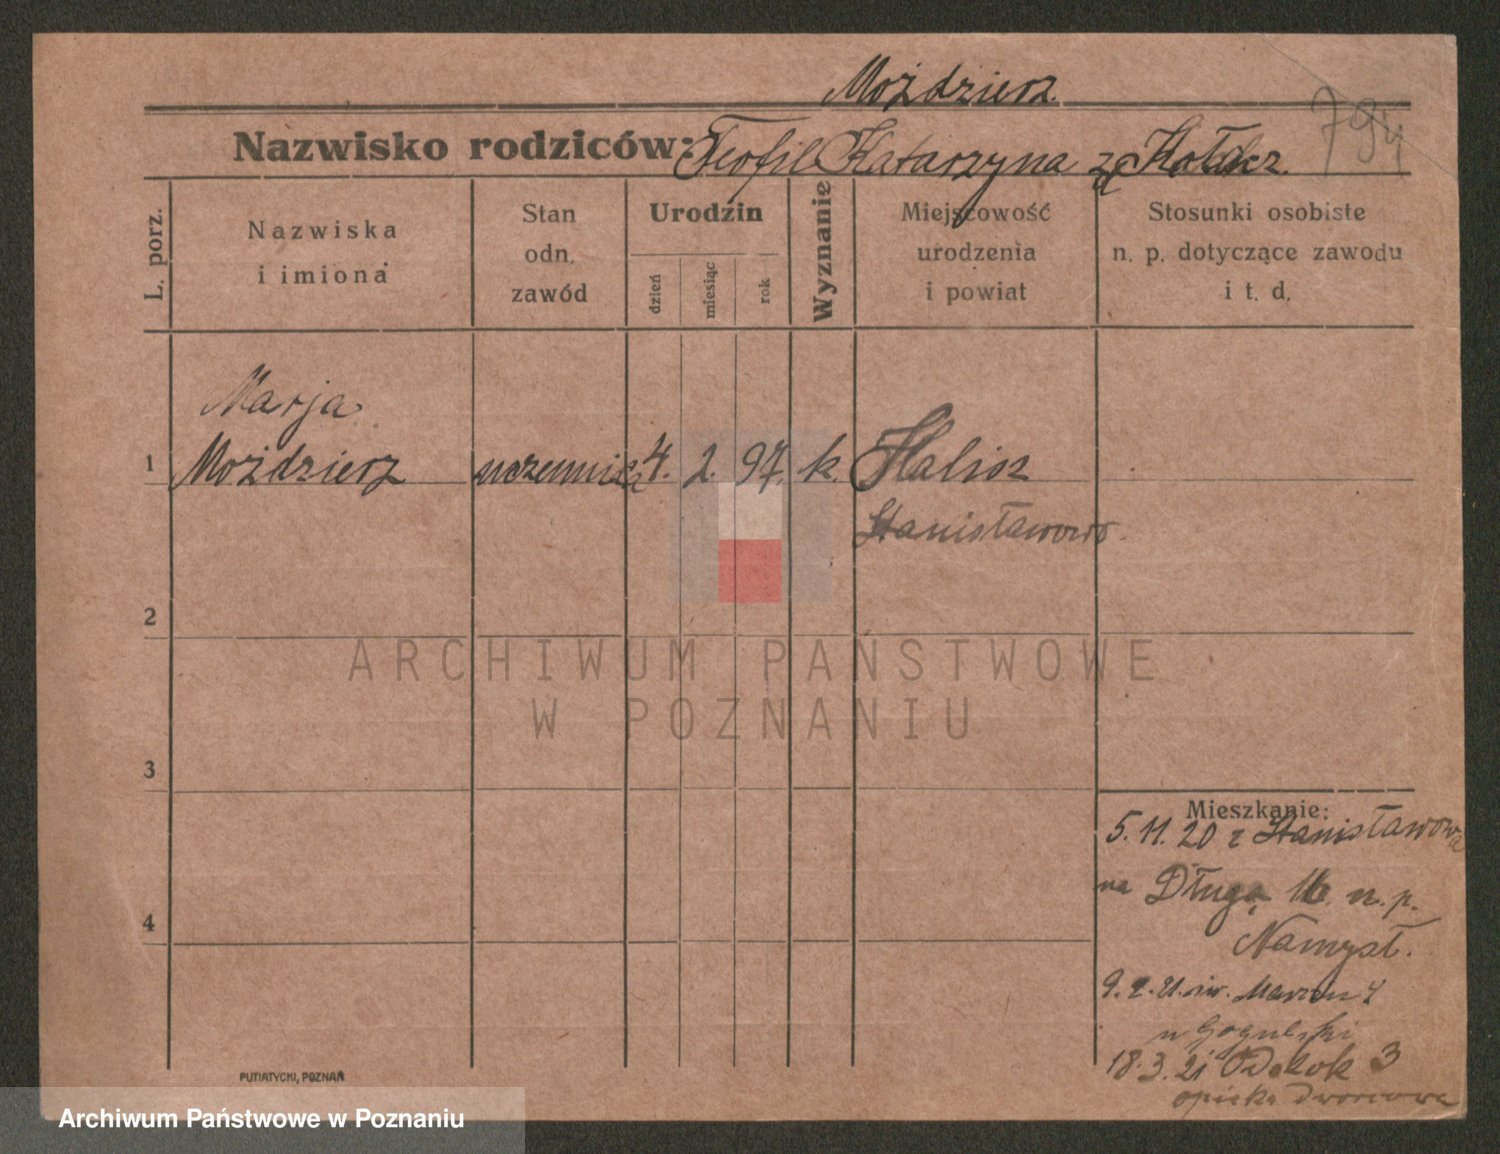 Możdzierz.
794
Nazwisko rodziców: Teofil Katarzyna z
L. porz.
Nazwiska
i imiona
Stan
odn.
zawód
Urodzin
dzień
miesiąc
rok
Wyznanie
Miejscowość
urodzenia
i powiat
Stosunki osobiste
n. p. dotyczące zawodu
i t. d.
Marja
1 Możdzierz uczennica 4. 2. 97. k. Halicz
Stanisławowo.
2
3
4
Mieszkanie:
5.11.20 z Stanisławowa
na Długą 16. n. p.
Namysł.
9.2.21. św. Marcin 4
u Gogulski
18.3.21 3
opieka dworcowa
PUTIATYCKI, POZNAŃ
ARCHIWUM PAŃSTWOWE
W POZNANIU
Archiwum Państwowe w Poznaniu